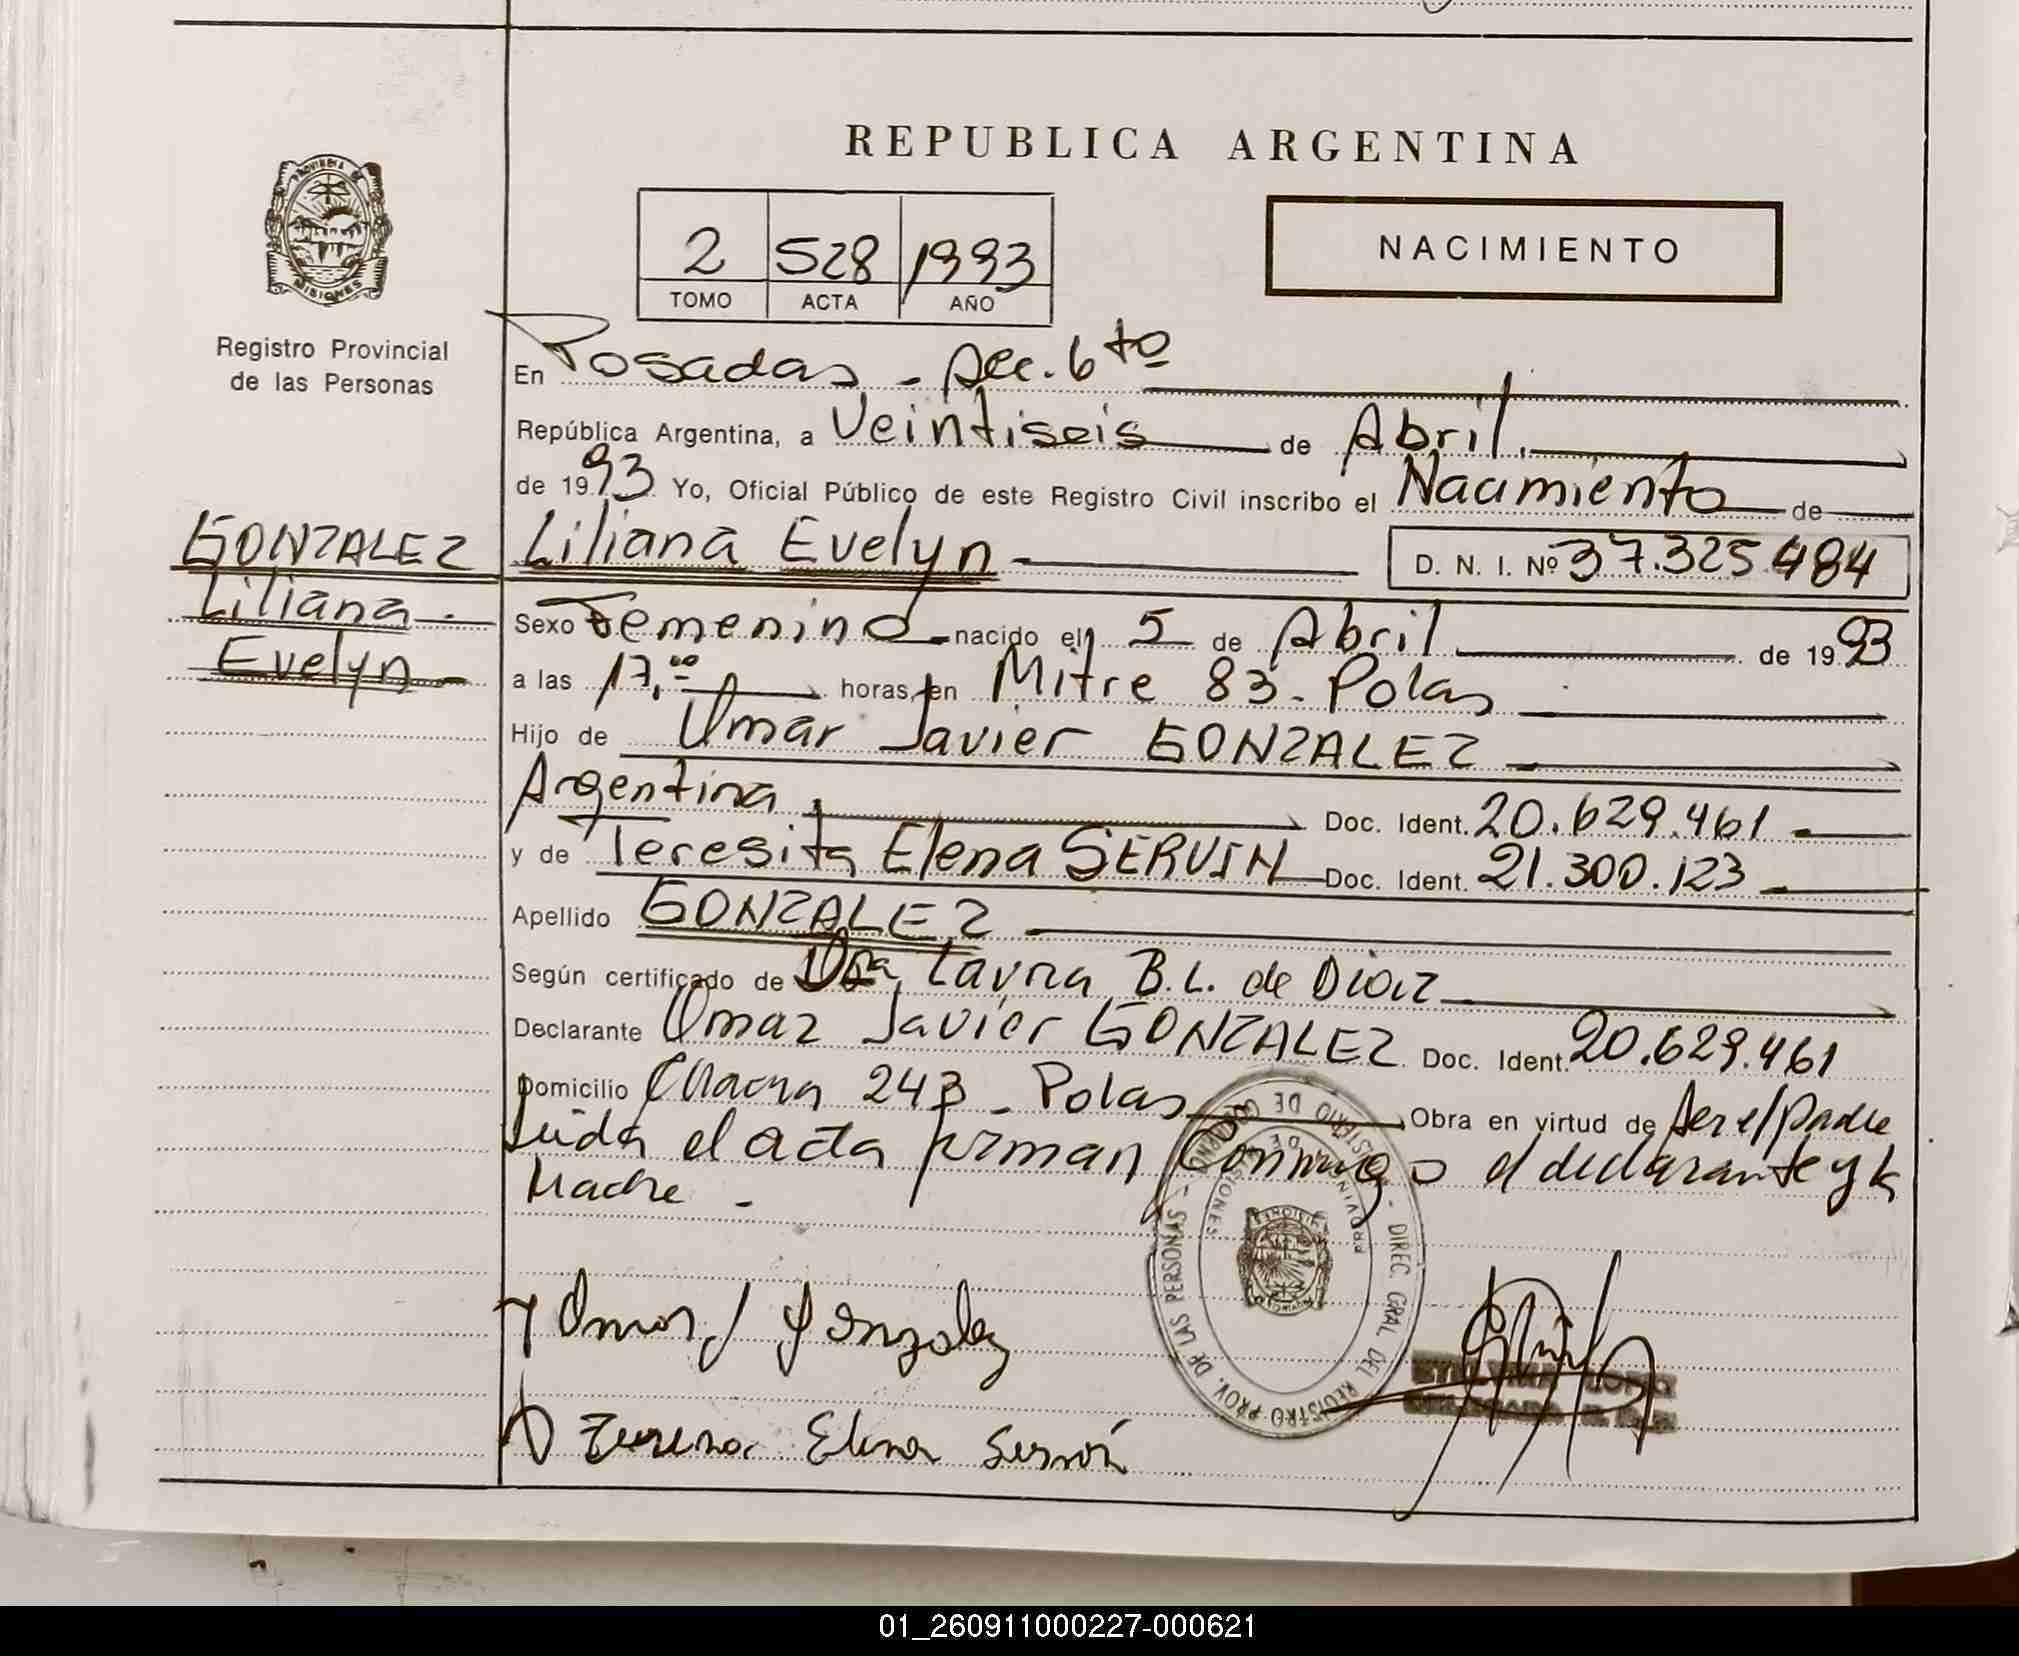 REPUBLICA ARGENTINA
PROVINCIA DE
MISIONES
Registro Provincial
de las Personas
2 528 1993
TOMO ACTA AÑO
NACIMIENTO
En Posadas - Sec. 6to
República Argentina, a Veintiseis de Abril.
de 1993 Yo, Oficial Público de este Registro Civil inscribo el Nacimiento de
GONZALEZ
Liliana
Evelyn
Liliana Evelyn D. N. I. Nº 37.325.484
Sexo Femenino nacido el 5 de Abril de 1993
a las 17,00 horas, en Mitre 83 - Pdas
Hijo de Omar Javier GONZALEZ
Argentina Doc. Ident. 20.629.461
y de Teresita Elena SERVIN Doc. Ident. 21.300.123
Apellido GONZALEZ
Según certificado de Dra Laura B.L. de Diaz
Declarante Omar Javier GONZALEZ Doc. Ident. 20.629.461
Domicilio Chacra 243 - Pdas Obra en virtud de Ser el padre
Leida el acta firman Conmigo el declarante y la
Madre -
MINISTERIO DE GOBIERNO - DIREC. GRAL DEL REGISTRO PROV. DE LAS PERSONAS
PROVINCIA DE MISIONES
Omar J Gonzalez
Elena Servin
01_260911000227-000621